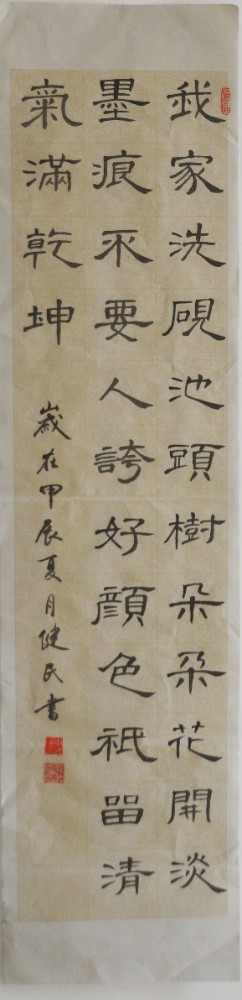 我家洗硯池頭樹朵朵花開淡
墨痕不要人誇好顏色祇留清
氣滿乾坤
歲在甲辰夏月健民書